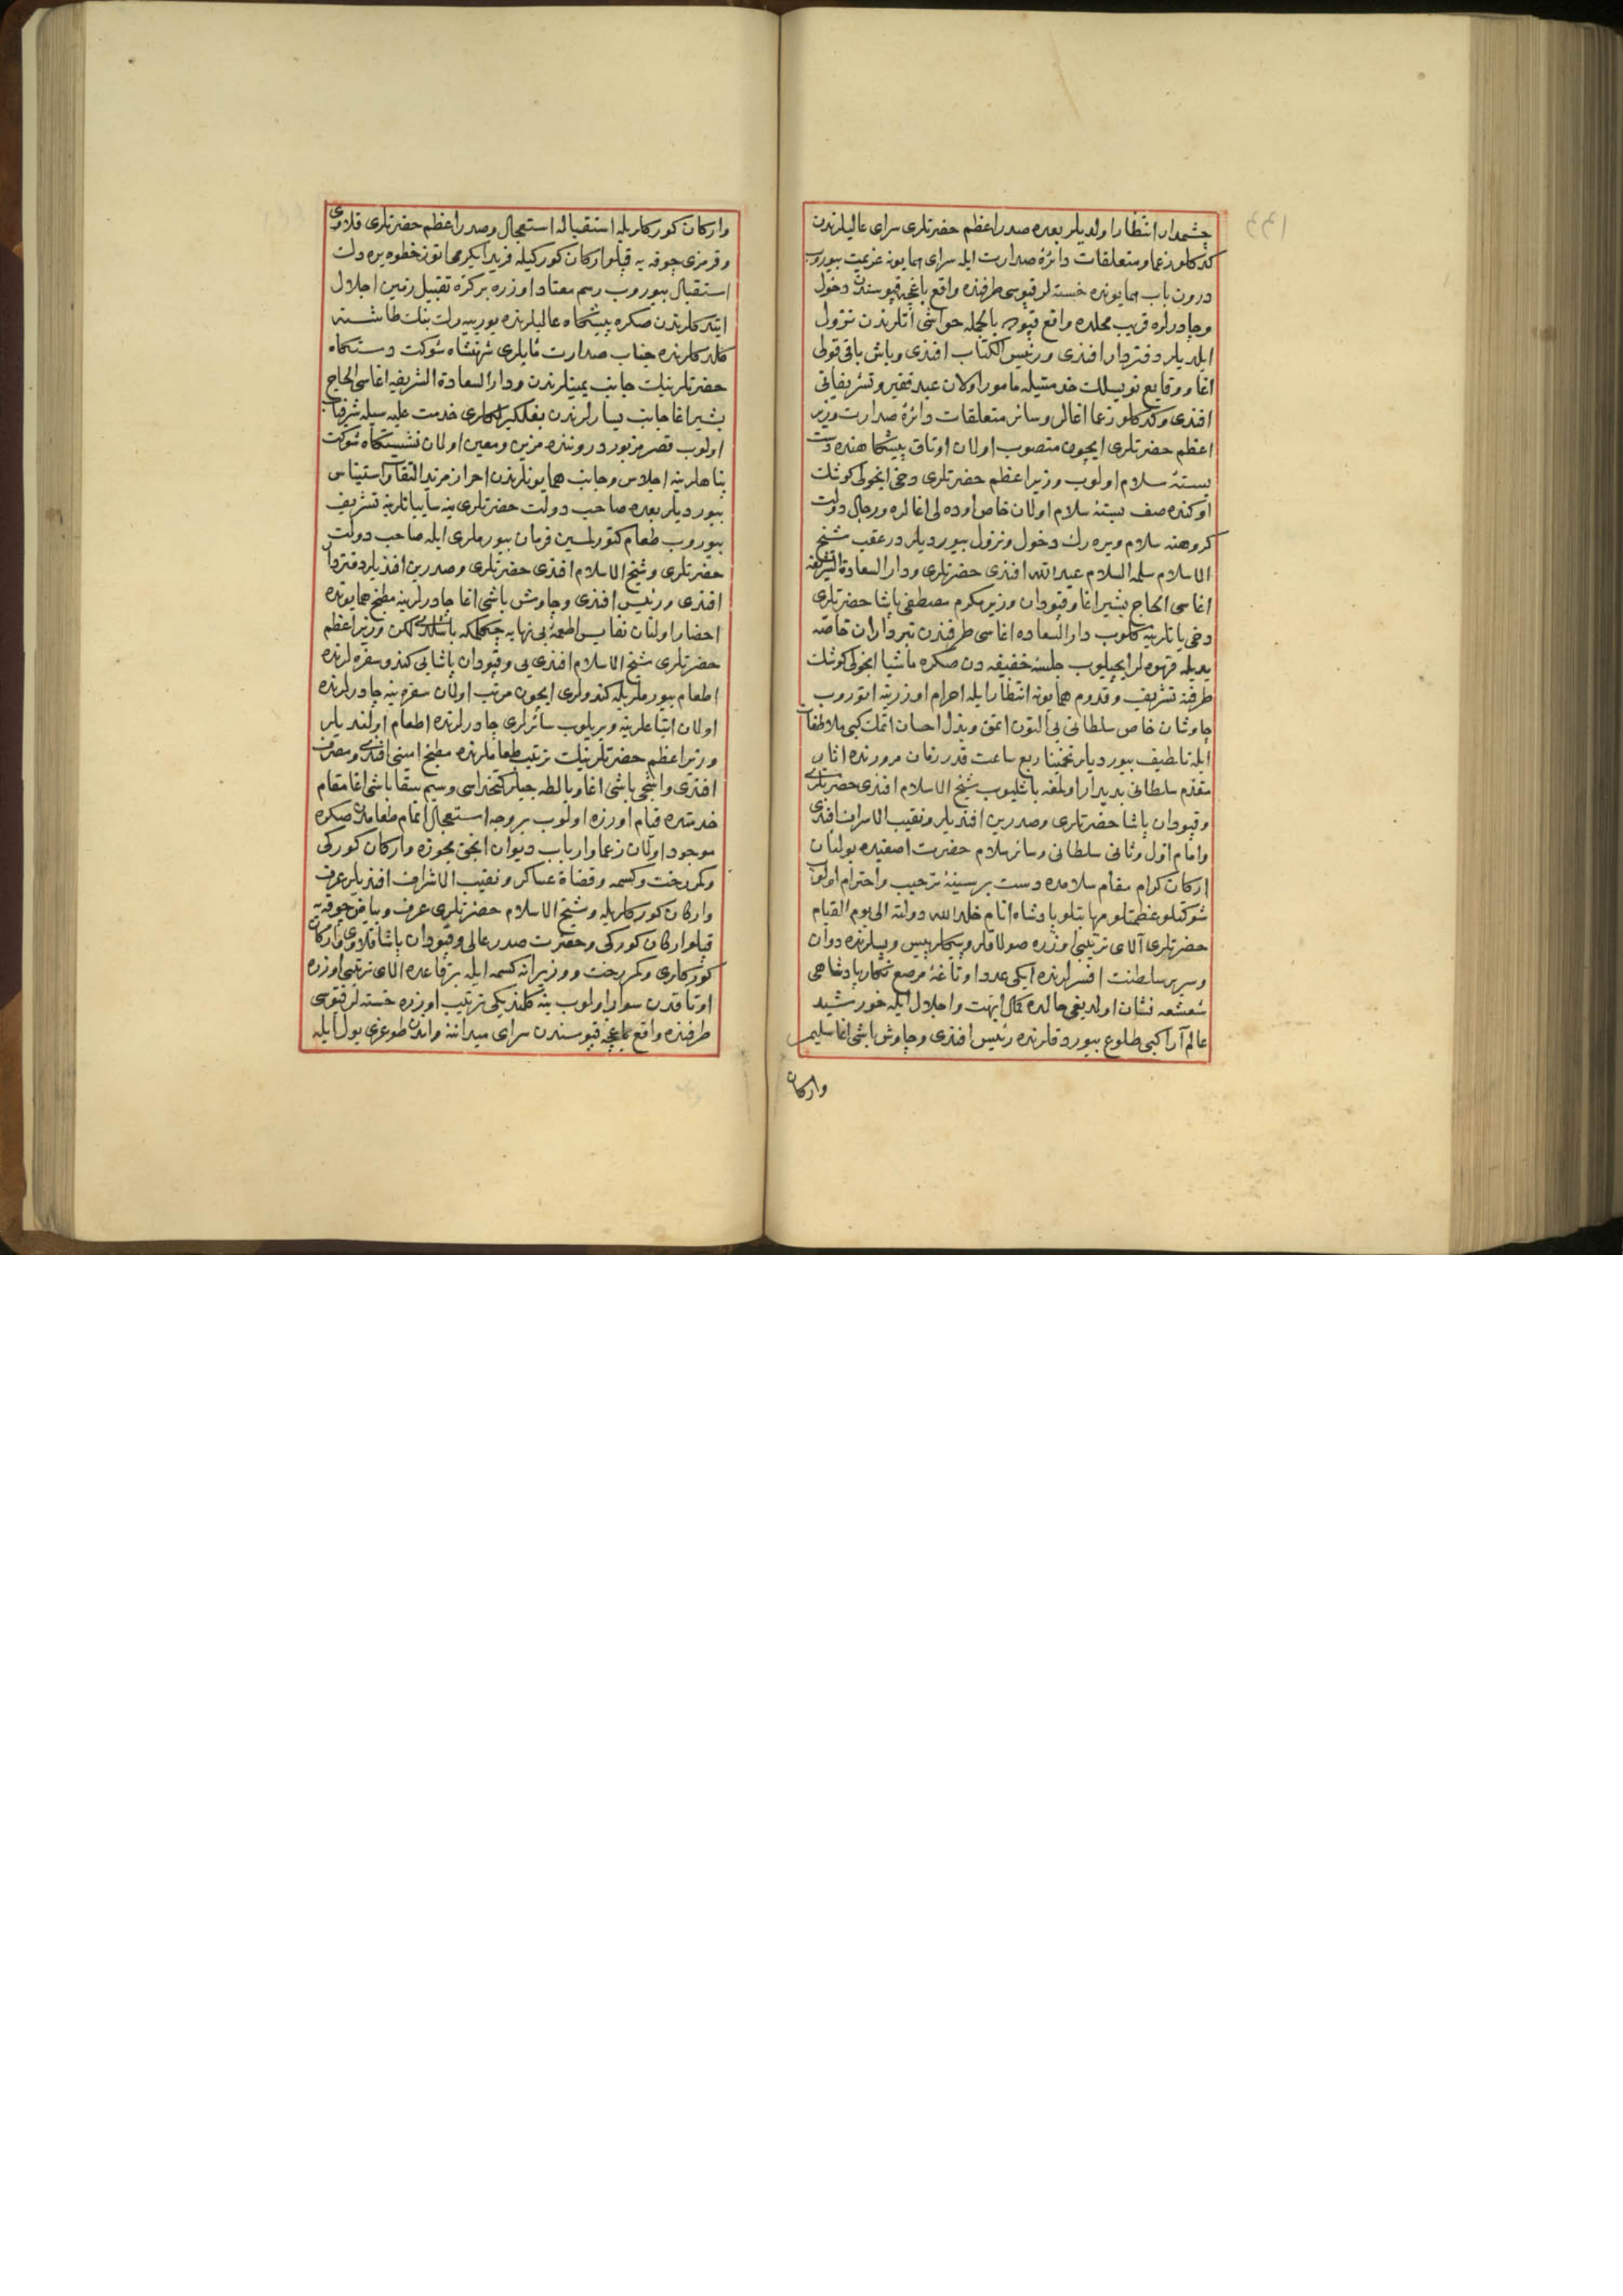 چشمدار انتظار اولدیلر بعده صدر اعظم حضرتلری سرای عالیلرندن
كدكلو زعما ومتعلقات دائرۀ صدارت ایله سرای همایونه عزیمت بیوروب
درون باب همایونده خسته لر قپوسی طرفنده واقع باغچه قپوسندن دخول
وچادرلره قریب محلده واقع قپویه بالجمله حواشی آتلرندن نزول
ایلدیلر دفتردار افندی ورئیس الكتاب افندی وباش باقی قولی
اغا ووقایع نویسلك خدمتیله مأمور اولان عبد حقیر وتشریفاتی
افندی وكدكلو زعما اغالر وسائر متعلقات دائرۀ صدارت وزیر
اعظم حضرتلری ایچون منصوب اولان اوتاق پیشكاهنده دست
بستۀ سلام اولوب وزیر اعظم حضرتلری دخی انجولی كوشك
اوكنده صف بستۀ سلام اولان خاص اوده لی اغالره ورجال دولت
كروهنه سلام ویره رك دخول ونزول بیوردیلر در عقب شیخ
الاسلام سلمه السلام عبد الله افندی حضرتلری ودار السعادة الشریفه
اغاسی الحاج بشیر اغا وقپودان وزیر مكرم مصطفی پاشا حضرتلری
دخی یانلرینه كلوب دار السعاده اغاسی طرفندن تبرداران خاصه
یدیله قهوه لر ایچیلوب جلسۀ خفیفه دن صكره ماشیا انجولی كوشك
طرفنه تشریف وقدوم همایونه انتظار ایله احرام اوزرینه اتوروب
چاوشان خاص سلطانی یی التون اتمق وبذل احسان اتمك كبی ملاطفات
ایله تلطیف بیوردیلر تخمینا ربع ساعت قدر زمان مرورنده اثار
مقدم سلطانی بدیدار اولمغه باشلیوب شیخ الاسلام افندی حضرتلری
وقپودان پاشا حضرتلری وصدرین افندیلر ونقیب الاشراف افندی
وامام اول وثانی سلطانی وسائر سلام حضرت اصفیده بولنان
اركان كرام مقام سلامده دست بر سینۀ ترحیب واحترام اولوب
شوكتلو عظمتلو مهابتلو پادشاه انام خلد الله دولته الی یوم القیام
حضرتلری آلای ترتیبی اوزره صولاقلر وپیكلر پیش وپسلرنده دوان
وسریر سلطنت افسرلرنده ایكی عدد اوتاغۀ مرصع نكار پادشاهی
شعشعه فشان اولدیغی حالده كمال ابهت واجلال ایله خورشید
عالم آرا كبی طلوع بیوردقلرنده رئیس افندی وچاوش باشی اغا سلیم
واركان
واركان كوركلریله استقباله استعجال وصدر اعظم حضرتلری قلاوی
وقرمزی چوقه یه قپلو اركان كوركیله قریبا یكرمی اتوز خطوه یره دك
استقبال بیوروب رسم معتاد اوزره بر كره تقبیل زمین اجلال
ایتدكلرندن صكره پیشكاه عالیلرنده یوریه رك بنك طاشنه
كلدكلرنده جناب صدارت مآبلری شهنشاه شوكت دستكاه
حضرتلرینك جانب یمینلرندن ودار السعادة الشریفه اغاسی الحاج
بشیر اغا جانب یسارلرندن بغلكیرلكلری خدمت علیه سیله شرفیاب
اولوب قصر مزبور دروننده مزین ومعین اولان نشیمنكاه شوكت
پناهلرینه اجلاس وجانب همایونلرندن احراز مزید التفات واستیناس
بیوردیلر بعده صاحب دولت حضرتلری ینه سایبانلرینه تشریف
بیوروب طعام كتورلسین فرمان بیورملری ایله صاحب دولت
حضرتلری وشیخ الاسلام افندی حضرتلری وصدرین افندیلر دفتردار
افندی ورئیس افندی وچاوش باشی اغا چادرلرینه مطبخ همایونده
احضار اولنان نفایس اطعمۀ بی نهایه چكلمكه باشلدی لكن وزیر اعظم
حضرتلری شیخ الاسلام افندی یی وقپودان پاشایی كندو سفره لرنده
اطعام بیورملریله كندولری ایچون مرتب اولان سفره ینه چادرلرنده
اولان اتباعلرینه ویریلوب سائرلری چادرلرنده اطعام اولندیلر
وزیر اعظم حضرتلرینك ترتیب طعاملرنده مطبخ امینی افندی ومصرف
افندی واشجی باشی اغا وبالطه جیلر كتخداسی وسیم سقا باشی اغا مقام
خدمتده قیام اوزره اولوب بر وجه استعجال اتمام طعامدن صكره
موجود اولان زعما وارباب دیوان انجق مجوزه واركان كوركی
وكمر رخت وكسمه وقضاة عساكر ونقیب الاشراف افندیلر عرف
واركان كوركلریله وشیخ الاسلام حضرتلری عرف وبیاض چوقه یه
قپلو اركان كوركی وحضرت صدر عالی وقپودان پاشا قلاوی واركان
كوركلری وكمر رخت ووزیرانه كسمه ایله بر قاعده الای ترتیبی اوزره
اوتاقدن سوار اولوب ینه كلندیكی ترتیب اوزره خسته لر قپوسی
طرفنده واقع باغچه قپوسندن سرای میداننه واندن طوغری یول ایله